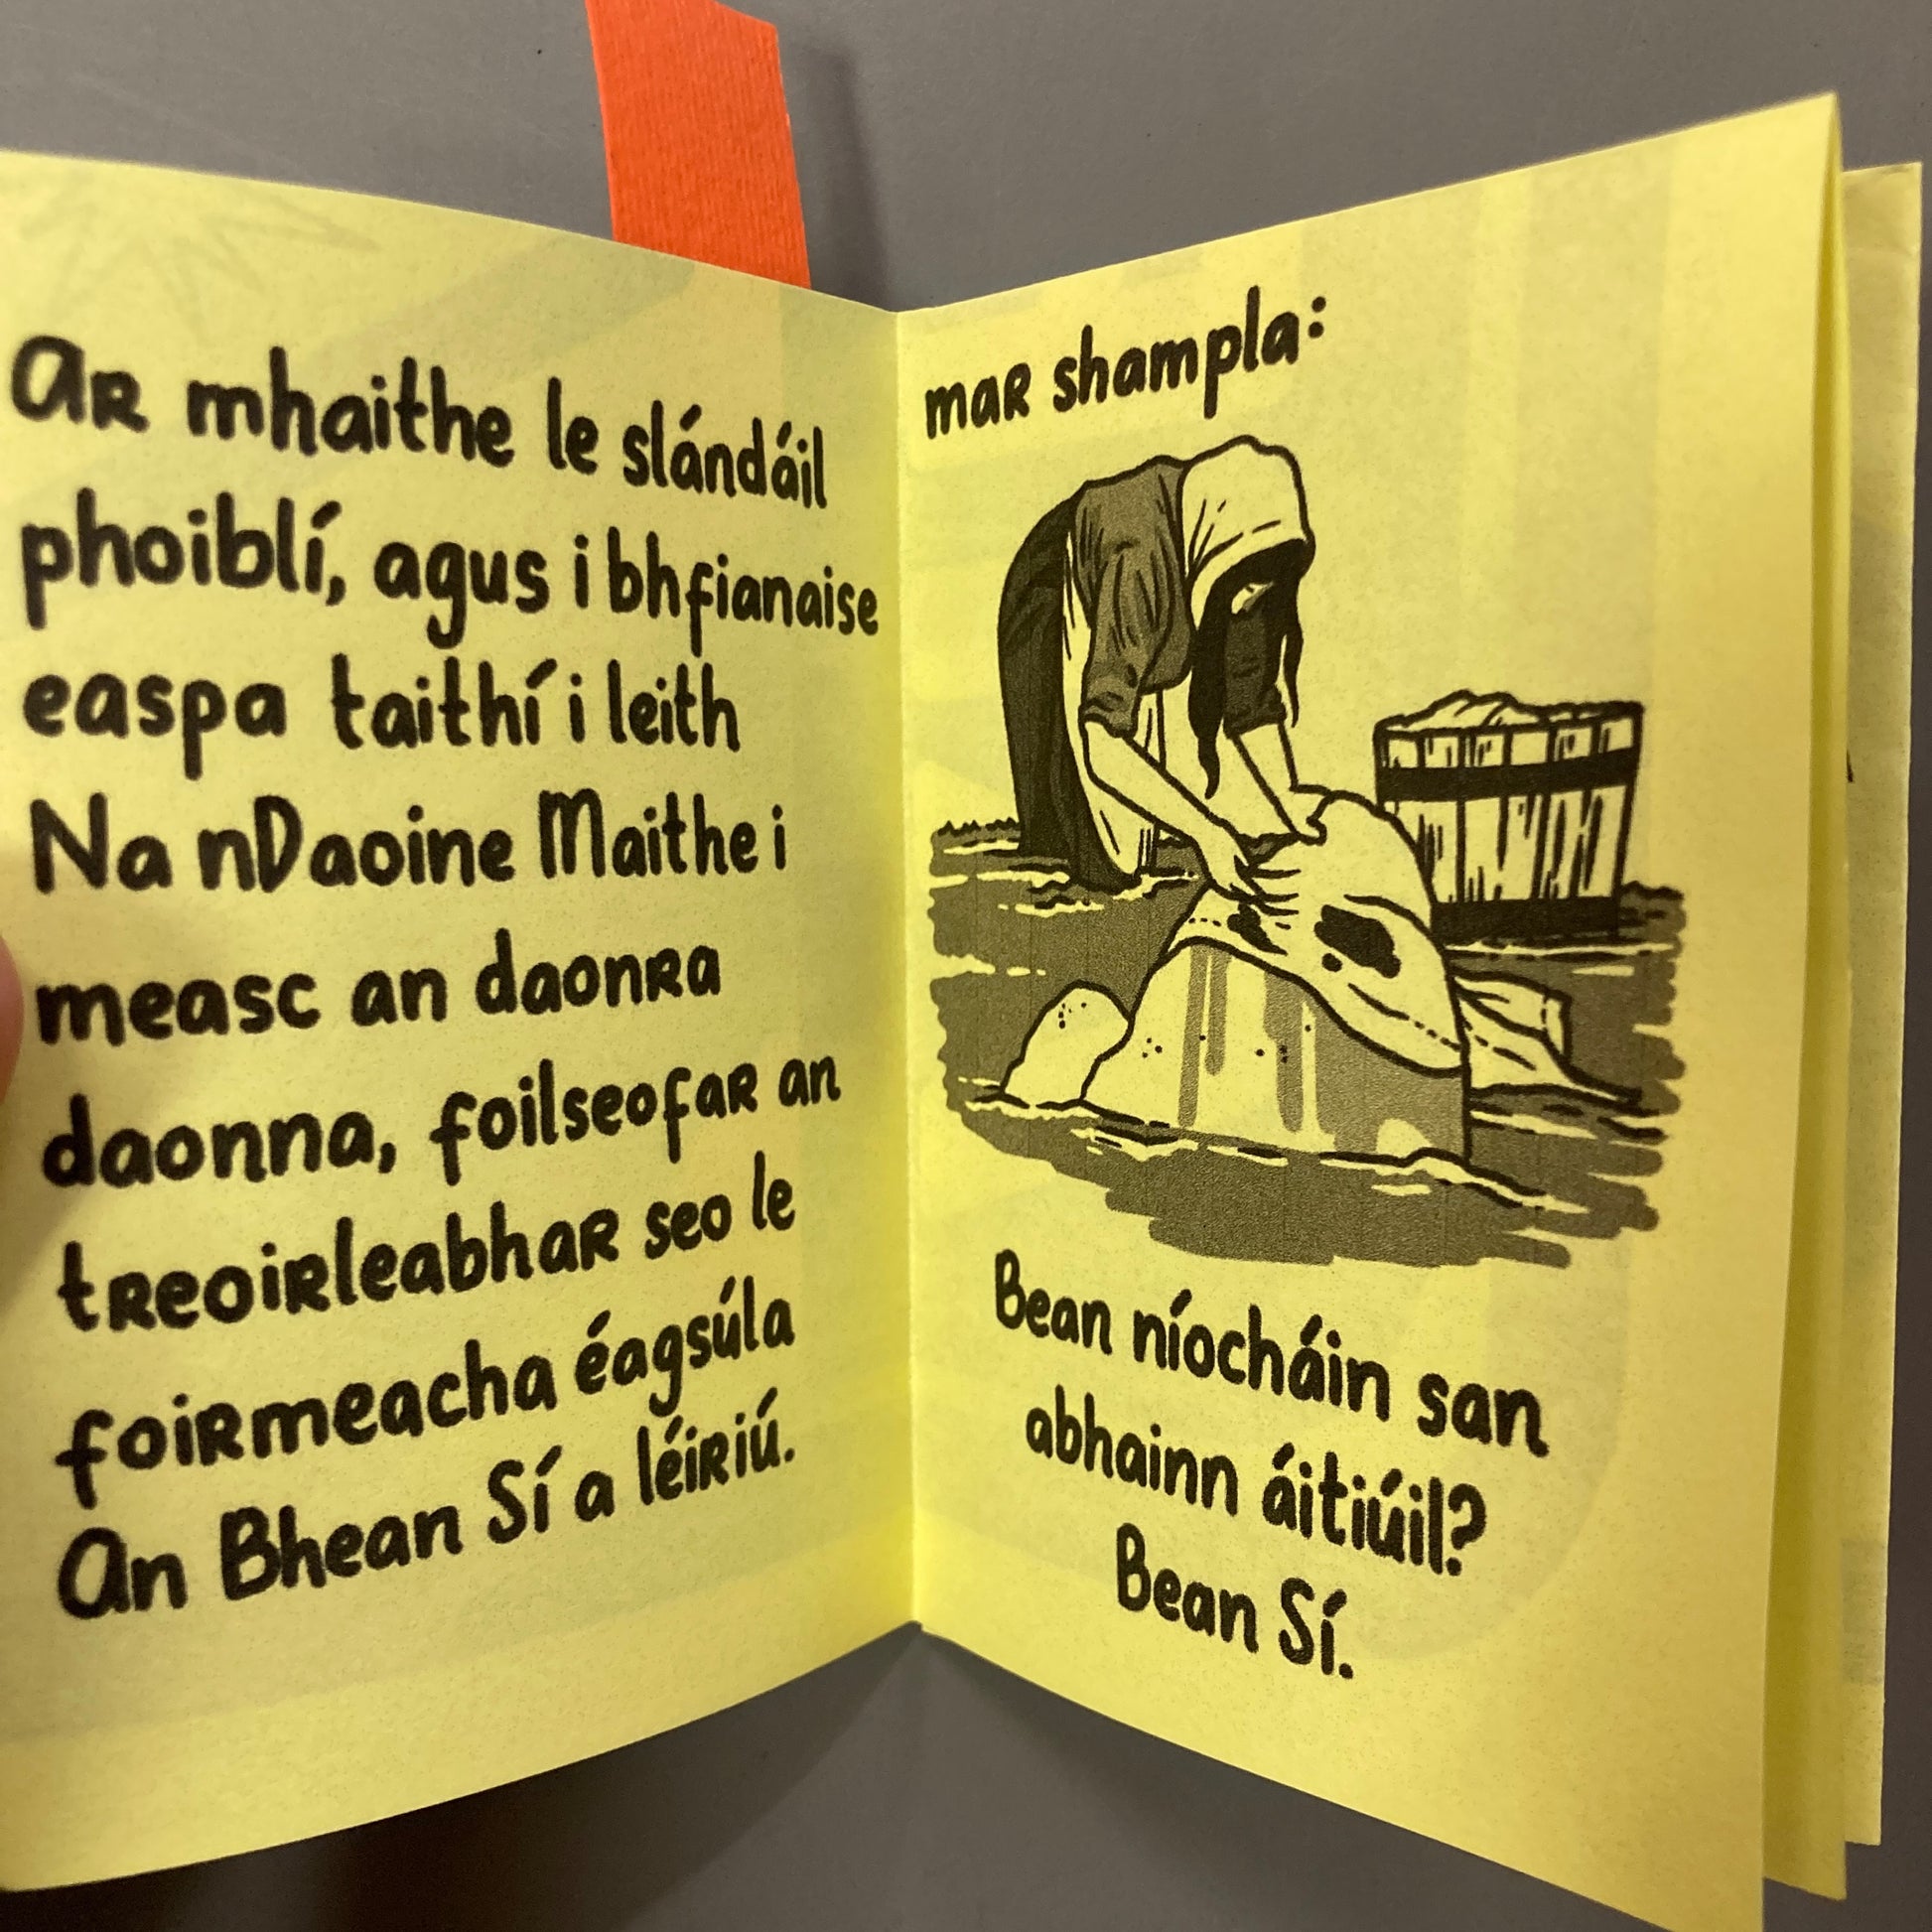 Ar mhaithe le slándáil
phoiblí, agus i bhfianaise
easpa taithí i leith
Na nDaoine Maithe i
measc an daonra
daonna, foilseofar an
treoirleabhar seo le
foirmeacha éagsúla
An Bhean Sí a léiriú.
mar shampla:
Bean níocháin san
abhainn áitiúil?
Bean Sí.